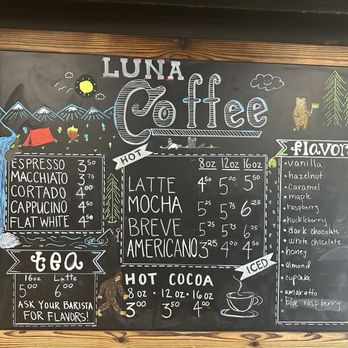 LUNA
Coffee
HOT
8oz 12oz 16oz
ESPRESSO 3.50
MACCHIATO 3.75
CORTADO 4.00
CAPPUCINO 4.50
FLAT WHITE 4.50
LATTE 4.50 5.00 5.50
MOCHA 5.25 5.75 6.25
BREVE 5.25 5.75 6.25
AMERICANO 3.25 4.00 4.50
ICED
tea
16oz Latte
5.00 6.00
ASK YOUR BARISTA
FOR FLAVORS!
HOT COCOA
8oz · 12oz · 16oz
3.00 3.50 4.00
flavor
• vanilla
• hazelnut
• caramel
• maple
• raspberry
• huckleberry
• dark chocolate
• white chocolate
• honey
• almond
• cupcake
• amaretto
blue raspberry